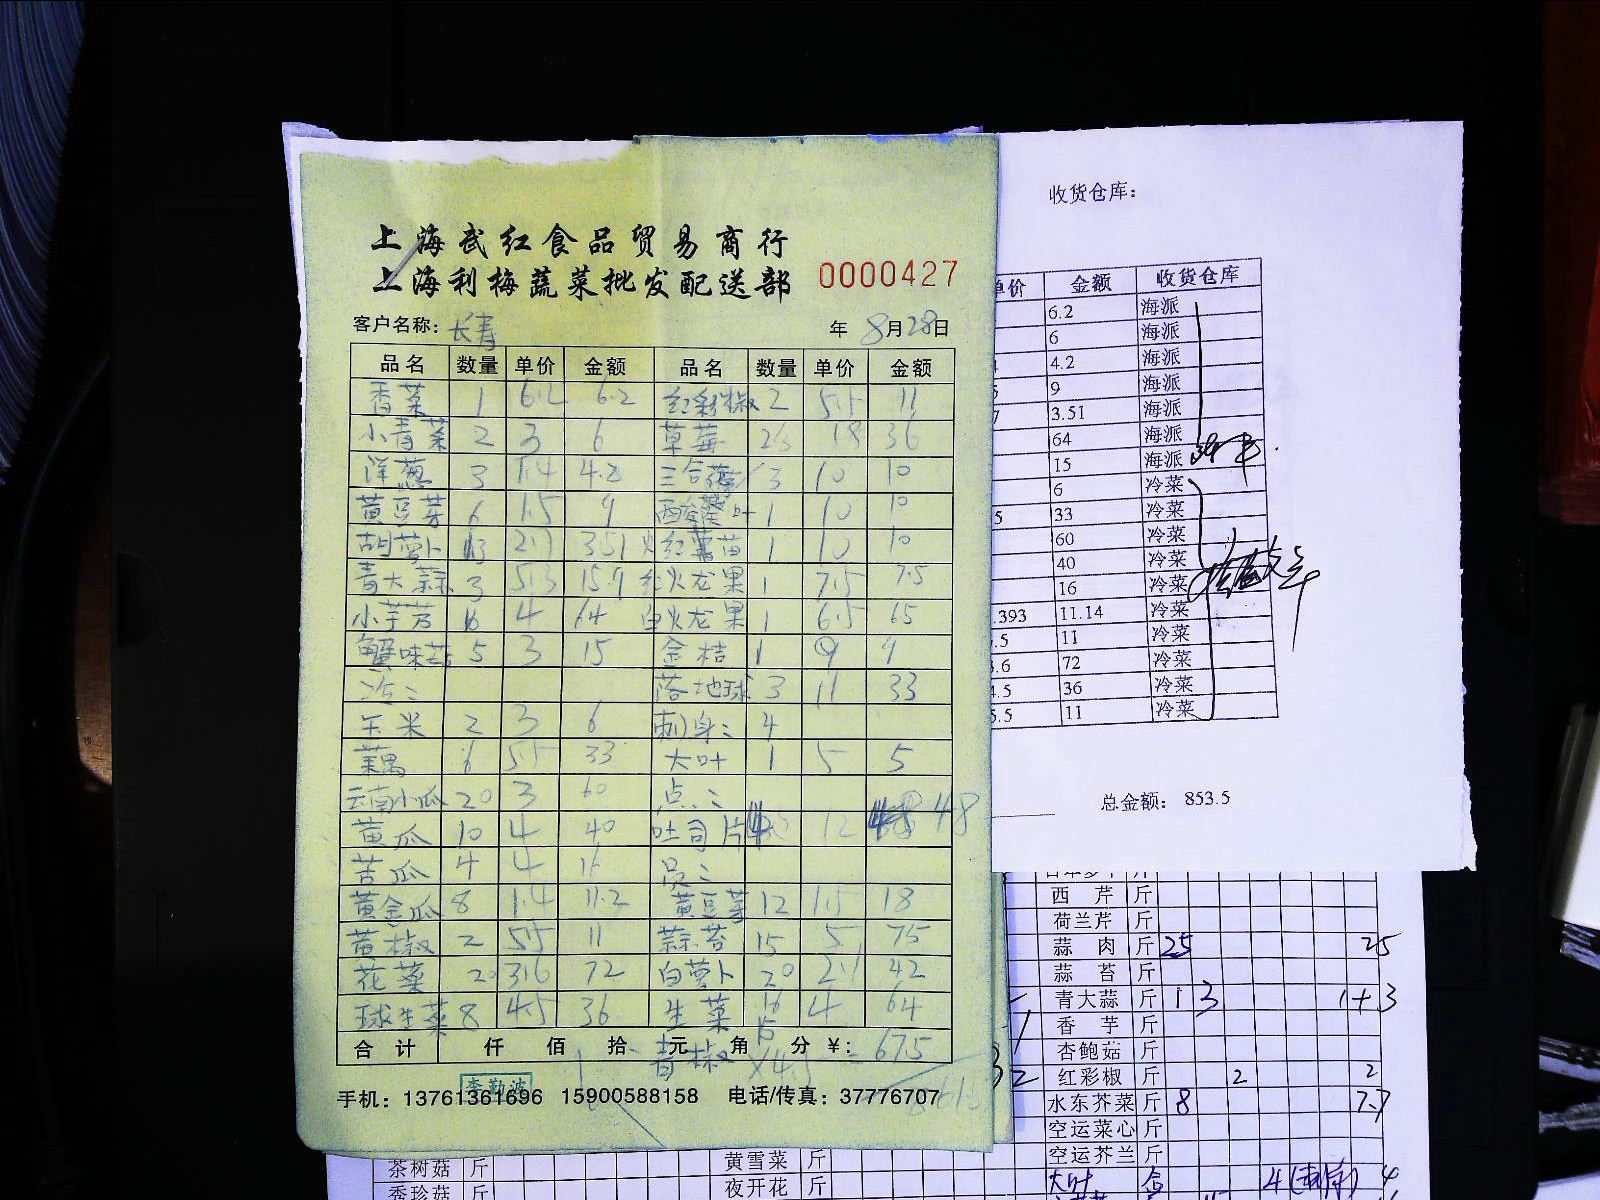 上海武红食品贸易商行
上海利梅蔬菜批发配送部 0000427
客户名称: 长寿 年 8月28日
品名 数量 单价 金额 品名 数量 单价 金额
香菜 1 6.2 6.2 红彩椒 2 5.5 11
小青菜 2 3 6 草莓 2 18 36
洋葱 3 1.4 4.2 3 10 10
黄豆芽 6 1.5 9 叶 1 10 10
胡萝卜 2.7 3.51 1 10 10
青大蒜 3 5.3 15.9 红火龙果 1 7.5 7.5
小芋艿 16 4 64 白火龙果 1 6.5 65
蟹味菇 5 3 15 金桔 1 9 9
落地球 3 11 33
玉米 2 3 6 刺身: 4
藕 6 5.5 33 大叶 1 5 5
云南小瓜 20 3 60 点:
黄瓜 10 4 40 吐司片 4 12 48
苦瓜 4 4 16 员:
黄金瓜 8 1.4 11.2 黄豆芽 12 1.5 18
黄椒 2 5.5 11 蒜苔 15 5 75
花菜 20 3.6 72 白萝卜 20 2.1 42
球生菜 8 4.5 36 生菜 16 4 64
合计 仟 佰 拾 元 角 分 ¥:
青椒 15 X4.5 = 67.5
李勤波
手机: 13761361696 15900588158 电话/传真: 37776707
收货仓库:
单价 金额 收货仓库
6.2 海派
6 海派
4.2 海派
9 海派
3.51 海派
64 海派
15 海派
6 冷菜
33 冷菜
60 冷菜
40 冷菜
16 冷菜
.393 11.14 冷菜
.5 11 冷菜
3.6 72 冷菜
4.5 36 冷菜
5.5 11 冷菜
总金额: 853.5
西芹 斤
荷兰芹 斤
蒜肉 斤 25 25
蒜苔 斤
青大蒜 斤 1 3 1+3
香芋 斤
杏鲍菇 斤
红彩椒 斤 2 2
水东芥菜 斤 8 7.7
空运菜心 斤
空运芥兰 斤
大叶 合 4 4
茶树菇 斤 黄雪菜 斤
秀珍菇 斤 夜开花 斤